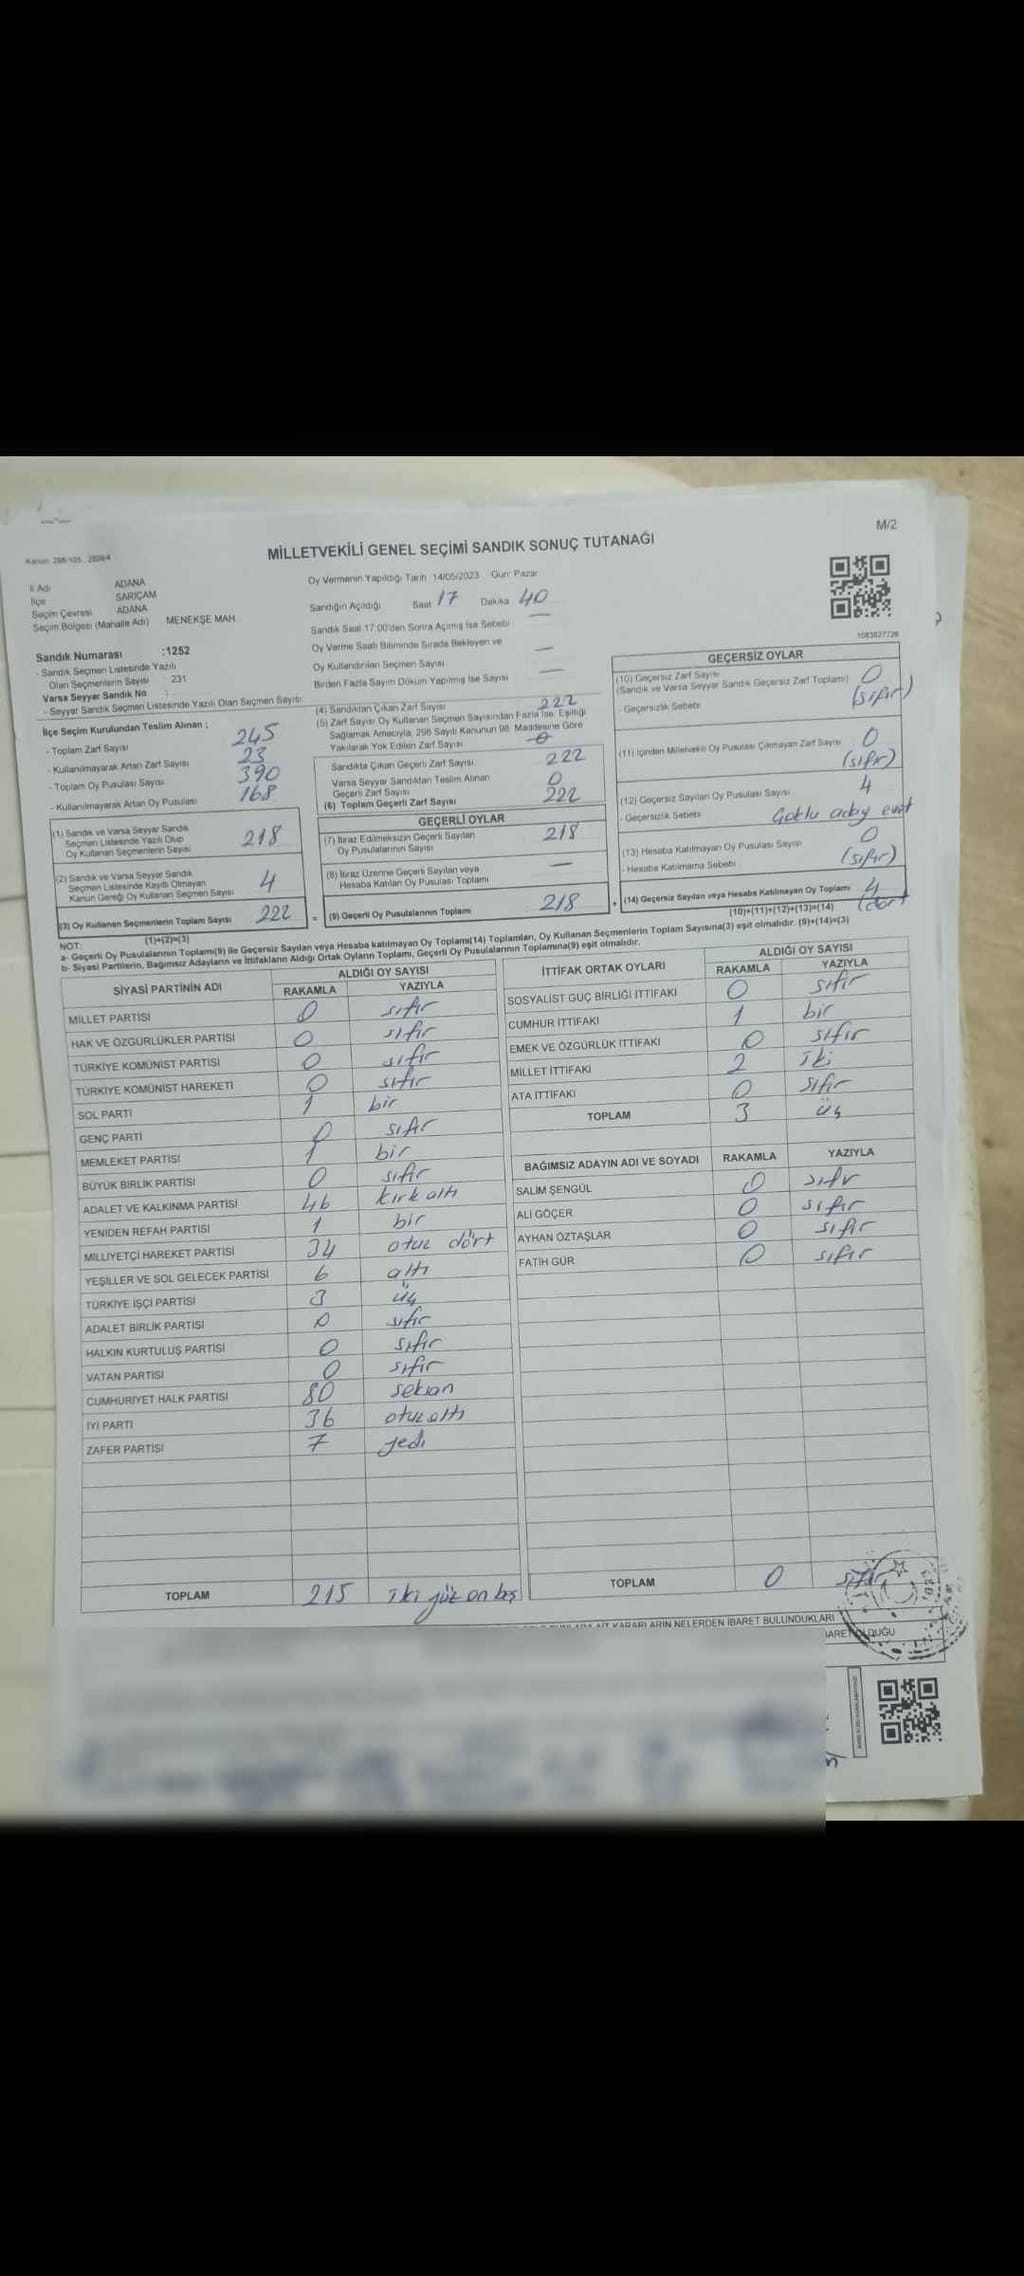 M/2
Kanun: 298/105 , 2839/4
MİLLETVEKİLİ GENEL SEÇİMİ SANDIK SONUÇ TUTANAĞI
İl Adı ADANA
İlçe SARIÇAM
Seçim Çevresi ADANA
Seçim Bölgesi (Mahalle Adı) MENEKŞE MAH
Sandık Numarası :1252
- Sandık Seçmen Listesinde Yazılı
Olan Seçmenlerin Sayısı 231
Varsa Seyyar Sandık No :
- Seyyar Sandık Seçmen Listesinde Yazılı Olan Seçmen Sayısı:
Oy Vermenin Yapıldığı Tarih 14/05/2023 Gün: Pazar
Sandığın Açıldığı Saat 17 Dakika 40
Sandık Saat 17:00'den Sonra Açılmış İse Sebebi : —
Oy Verme Saati Bitiminde Sırada Bekleyen ve
Oy Kullandırılan Seçmen Sayısı —
Birden Fazla Sayım Döküm Yapılmış İse Sayısı —
1083827726
İlçe Seçim Kurulundan Teslim Alınan ;
- Toplam Zarf Sayısı 245
- Kullanılmayarak Artan Zarf Sayısı 23
- Toplam Oy Pusulası Sayısı 390
- Kullanılmayarak Artan Oy Pusulası 168
(1) Sandık ve Varsa Seyyar Sandık
Seçmen Listesinde Yazılı Olup
Oy Kullanan Seçmenlerin Sayısı 218
(2) Sandık ve Varsa Seyyar Sandık
Seçmen Listesinde Kayıtlı Olmayan
Kanun Gereği Oy Kullanan Seçmen Sayısı 4
(3) Oy Kullanan Seçmenlerin Toplam Sayısı 222 =
(1)+(2)=(3)
(4) Sandıktan Çıkan Zarf Sayısı 222
(5) Zarf Sayısı Oy Kullanan Seçmen Sayısından Fazla İse, Eşitliği
Sağlamak Amacıyla, 298 Sayılı Kanunun 98. Maddesine Göre
Yakılarak Yok Edilen Zarf Sayısı 0
Sandıkta Çıkan Geçerli Zarf Sayısı 222
Varsa Seyyar Sandıktan Teslim Alınan
Geçerli Zarf Sayısı 0
(6) Toplam Geçerli Zarf Sayısı 222
GEÇERLİ OYLAR
(7) İtiraz Edilmeksizin Geçerli Sayılan
Oy Pusulalarının Sayısı 218
(8) İtiraz Üzerine Geçerli Sayılan veya
Hesaba Katılan Oy Pusulası Toplamı —
(9) Geçerli Oy Pusulalarının Toplamı 218 +
GEÇERSİZ OYLAR
(10) Geçersiz Zarf Sayısı 0
(Sandık ve Varsa Seyyar Sandık Geçersiz Zarf Toplamı) (sıfır)
- Geçersizlik Sebebi :
(11) İçinden Milletvekili Oy Pusulası Çıkmayan Zarf Sayısı 0
(sıfır)
(12) Geçersiz Sayılan Oy Pusulası Sayısı 4
- Geçersizlik Sebebi :
(13) Hesaba Katılmayan Oy Pusulası Sayısı 0
- Hesaba Katılmama Sebebi : (sıfır)
(14) Geçersiz Sayılan veya Hesaba Katılmayan Oy Toplamı 4 (dört
(10)+(11)+(12)+(13)=(14)
NOT:
a- Geçerli Oy Pusulalarının Toplamı(9) ile Geçersiz Sayılan veya Hesaba katılmayan Oy Toplamı(14) Toplamları, Oy Kullanan Seçmenlerin Toplam Sayısına(3) eşit olmalıdır. (9)+(14)=(3)
b- Siyasi Partilerin, Bağımsız Adayların ve İttifakların Aldığı Ortak Oyların Toplamı, Geçerli Oy Pusulalarının Toplamına(9) eşit olmalıdır.
SİYASİ PARTİNİN ADI ALDIĞI OY SAYISI
RAKAMLA YAZIYLA
MİLLET PARTİSİ 0 sıfır
HAK VE ÖZGÜRLÜKLER PARTİSİ 0 sıfır
TÜRKİYE KOMÜNİST PARTİSİ 0 sıfır
TÜRKİYE KOMÜNİST HAREKETİ 0 sıfır
SOL PARTİ 1 bir
GENÇ PARTİ 0 sıfır
MEMLEKET PARTİSİ 1 bir
BÜYÜK BİRLİK PARTİSİ 0 sıfır
ADALET VE KALKINMA PARTİSİ 46 kırk altı
YENİDEN REFAH PARTİSİ 1 bir
MİLLİYETÇİ HAREKET PARTİSİ 34 otuz dört
YEŞİLLER VE SOL GELECEK PARTİSİ 6 altı
TÜRKİYE İŞÇİ PARTİSİ 3 üç
ADALET BİRLİK PARTİSİ 0 sıfır
HALKIN KURTULUŞ PARTİSİ 0 sıfır
VATAN PARTİSİ 0 sıfır
CUMHURİYET HALK PARTİSİ 80 seksan
İYİ PARTİ 36 otuz altı
ZAFER PARTİSİ 7 yedi
TOPLAM 215 iki yüz on beş
İTTİFAK ORTAK OYLARI ALDIĞI OY SAYISI
RAKAMLA YAZIYLA
SOSYALİST GÜÇ BİRLİĞİ İTTİFAKI 0 sıfır
CUMHUR İTTİFAKI 1 bir
EMEK VE ÖZGÜRLÜK İTTİFAKI 0 sıfır
MİLLET İTTİFAKI 2 iki
ATA İTTİFAKI 0 sıfır
TOPLAM 3 üç
BAĞIMSIZ ADAYIN ADI VE SOYADI RAKAMLA YAZIYLA
SALİM ŞENGÜL 0 sıfır
ALİ GÖÇER 0 sıfır
AYHAN ÖZTAŞLAR 0 sıfır
FATİH GÜR 0 sıfır
TOPLAM 0 sıfır
KARARLARIN NELERDEN İBARET BULUNDUKLARI
OLDUĞU